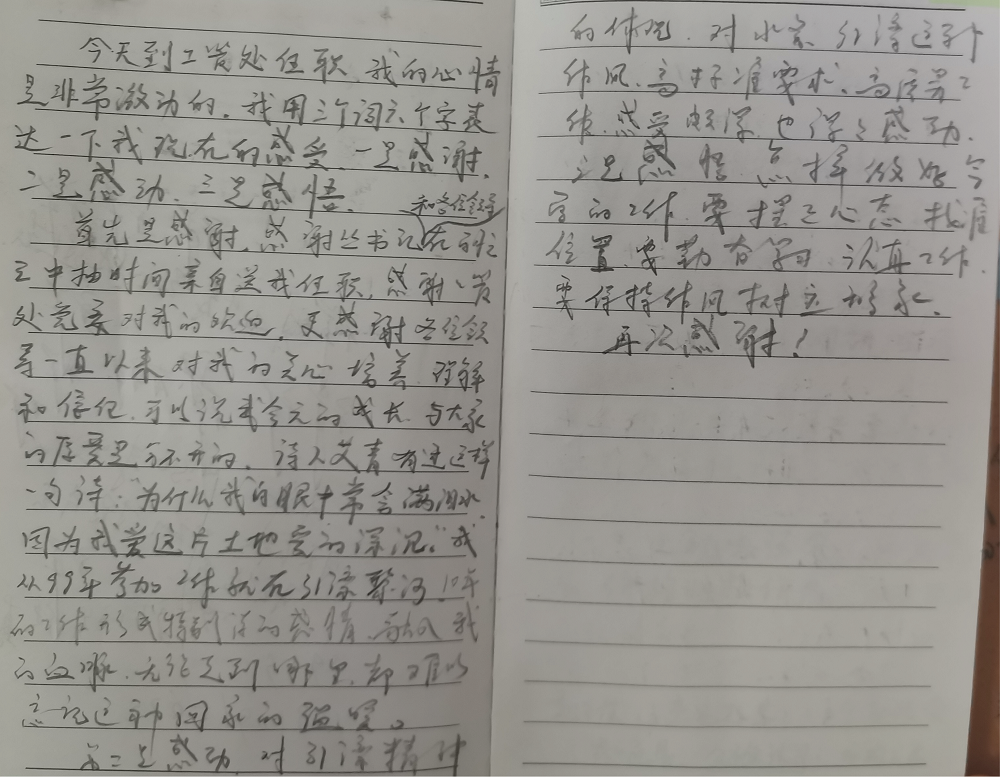 今天到工管处任职，我的心情
是非常激动的。我用三个词六个字表
达一下我现在的感受，一是感谢，
二是感动，三是感悟。
和各位领导
首先是感谢，感谢丛书记在百忙
之中抽时间亲自送我任职，感谢管
处党委对我的欢迎，更感谢各位领
导一直以来对我的关心培养、理解
和信任，可以说我今天的成长，与大家
的厚爱是分不开的，诗人艾青有过这样
一句诗：“为什么我的眼中常含满泪水，
因为我爱这片土地爱的深沉。”我
从99年参加工作就在引滦黎河，10年
的工作形成特别深的感情，融入我
的血脉，无论走到哪里，都难以
忘记这种回家的温暖。
第二是感动，对引滦精神
的体现，对水客、引滦这个
作风、高标准要求、高质量工
作，感受颇深，也深深感动。
三是感悟，怎样做好今
后的工作，要摆正心态，找准
位置，要勤奋学习，认真工作，
要保持作风，树立形象。
再次感谢！